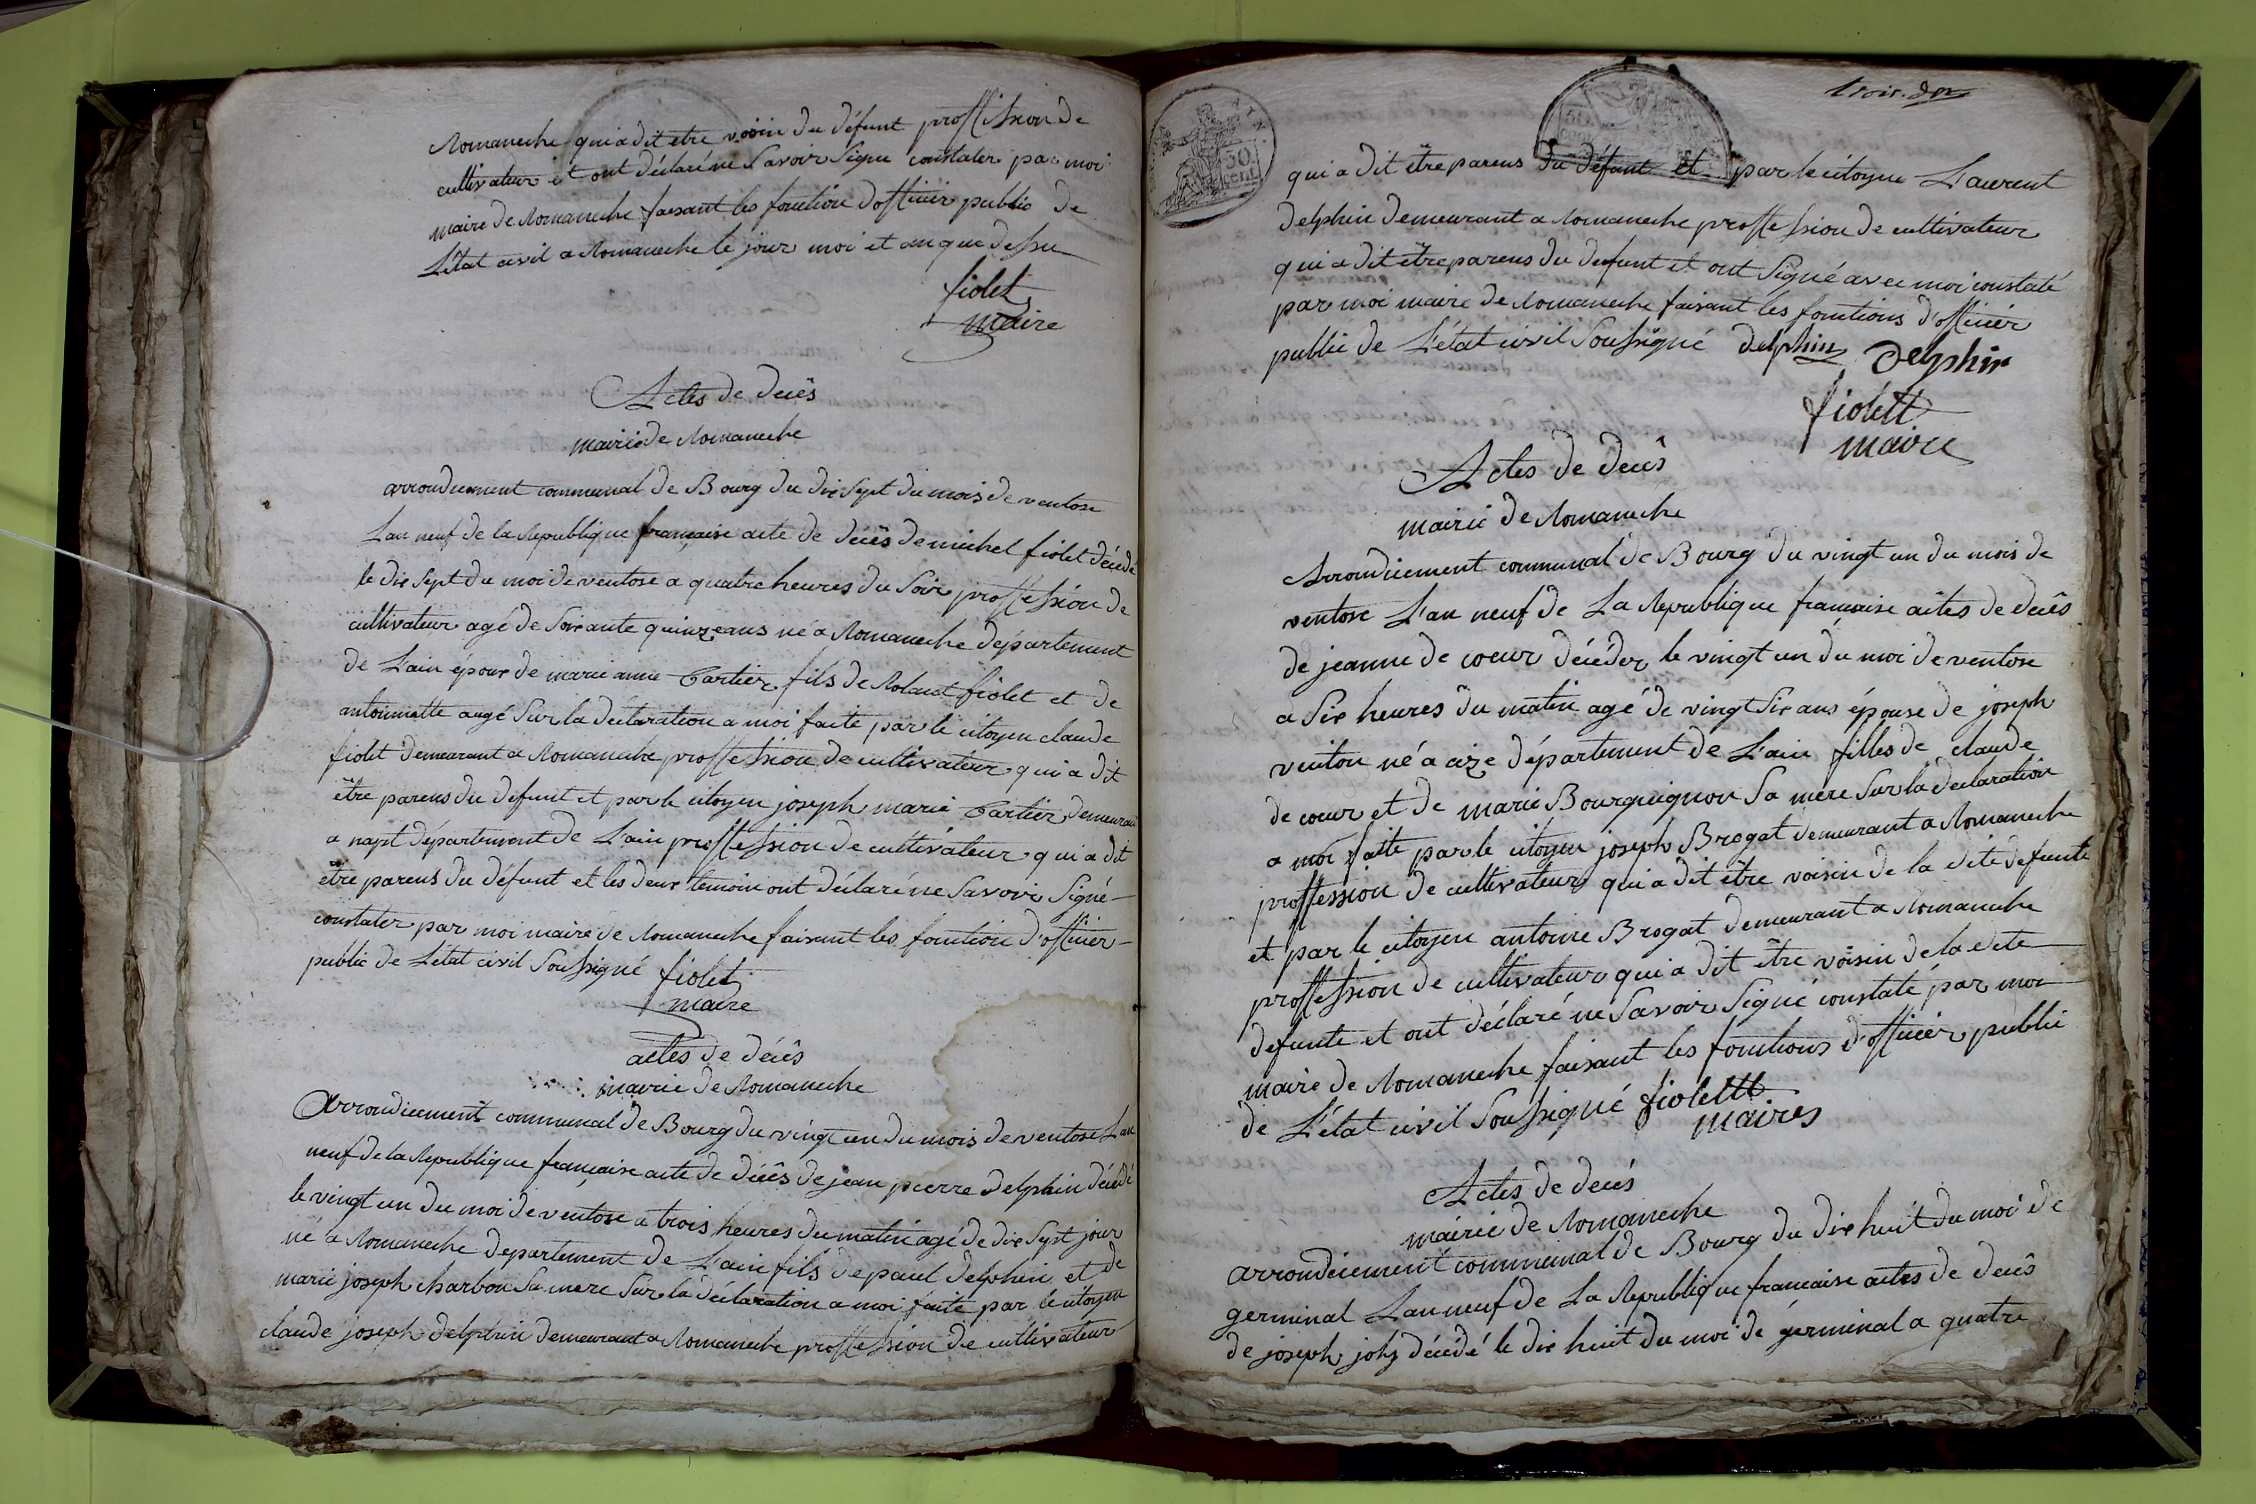 Romaneche qui a dit etre voisin du défunt proffession de
cultivateur et ont déclaré ne savoir signe constater par moi
maire de Romaneche faisant les fonction d'officier public de
L'état civil a Romaneche le jour moi et an que dessu
fiolet
maire
Actes de decês
mairie de Romaneche
arrondicement communal de Bourg du dix sept du mois de ventose
L'an neuf de la Republique francaise acte de décês de michel fiolet décédé
le dix sept du moi de ventose a quatre heures du soir proffession de
cultivateur agé de soixante quinze ans né a Romaneche département
de L'ain époux de marie anne Cartier fils de Roland fiolet et de
antoinnette augé sur la déclaration a moi faite par le citoyen claude
fiolet demeurant a Romaneche proffession de cultivateur qui a dit
être parens du défunt et par le citoyen joseph marie Cartier demeurant
a napt département de L'ain proffession de cultivateur qui a dit
être parens du défunt et les deux temoin ont déclaré ne savoir signé
constater par moi maire de Romaneche faisant les fonction d'officier
public de L'état civil soussigné fiolet
maire
actes de décês
mairie de Romaneche
Arrondicement communal de Bourg du vingt un du mois de ventose L'an
neuf de la Republique francaise acte de décês de jean pierre delphin décédé
le vingt un du moi de ventose a trois heures du matin agé de dix sept jour
né a Romaneche département de L'ain fils de paul delphin et de
marie joseph charbon sa mere sur la déclaration a moi faite par le citoyen
claude joseph delphin demeurant a Romaneche proffession de cultivateur
trois.
50
cent
qui a dit être parens du défunt et par le citoyen Laurent
delphin demeurant a Romaneche proffession de cultivateur
qui a dit être parens du defunt et ont signé avec moi constaté
par moi maire de Romaneche faisant les fonctions d'officier
public de L'état civil soussigné delphin delphin
fiolett
maire
Actes de decês
mairie de Romaneche
Arrondicement communal de Bourg du vingt un du mois de
ventose L'an neuf de La Republique francaise actes de decês
de jeanne de coeur décéder le vingt un du moi de ventose
a six heures du matin agé de vingt six ans épouse de joseph
vuiton né a cize département de L'ain filles de claude
de coeur et de marie Bourguignon sa mere sur la declaration
a moi faite par le citoyen joseph Brogat demeurant a Romaneche
proffession de cultivateur qui a dit être voisin de la dite defunte
et par le citoyen antoine Brogat demeurant a Romaneche
proffession de cultivateur qui a dit être voisin de la dite
defunte et ont déclaré ne savoir signé constaté par moi
maire de Romaneche faisant les fonctions d'officier public
de L'état civil soussigné fiolett
maires
Actes de decés
mairie de Romaneche
arrondicement communal de Bourg du dix huit du moi de
germinal L'an neuf de La Republique francaise actes de decês
de joseph décédé le dix huit du moi de germinal a quatre